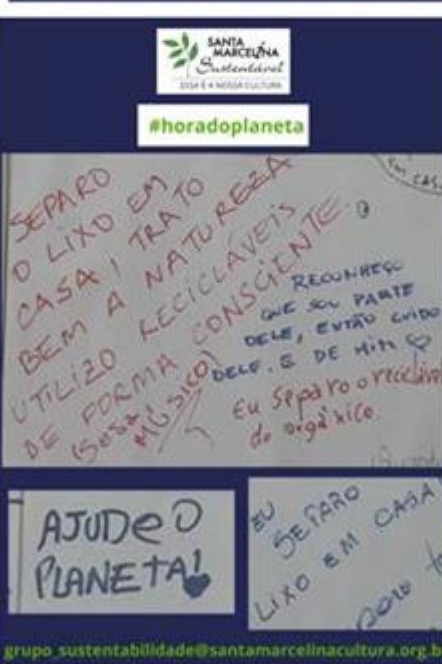 SANTA
MARCELINA
Sustentável
ESSA É A NOSSA CULTURA
#horadoplaneta
EM CASA
SEPARO
O LIXO EM
CASA, TRATO
BEM A NATUREZA
UTILIZO RECICLÁVEIS
DE FORMA CONSCIENTE.
MÚSICO)
RECONHEÇO
QUE SOU PARTE
DELE, ENTÃO CUIDO
DELE. E DE MIM
Eu separo o reciclável
do orgânico.
AJUDe O
PLANETA!
EU
SEPARO
LIXO EM CASA
grupo_sustentabilidade@santamarcelinacultura.org.b